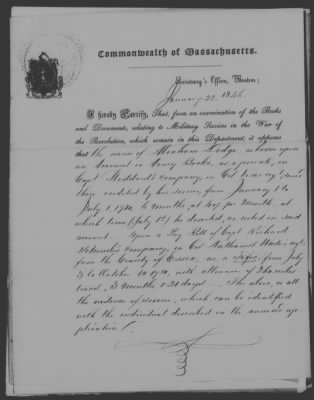 Commonwealth of Massachusetts.
Secretary's Office, Boston;
January 22. 1846.
I hereby Certify, That, from an examination of the Books
and Documents, relating to Military Services in the War of
the Revolution, which remain in this Department, it appears
that the name of Abraham Dodge, is borne upon
an Account in Army Books, as a private, in
Capt Stoddard's Company, in Col
then credited by his service, from January 1 to
July 1, 1780, 6 months at 40/ per Month. at
which time (July 1st) he deserted, as noted in said
account. Upon a Pay Roll of Capt Richard
Company, in Col Nathaniel Wade's regt
from the County of Essex, as a Fifer, from July
3 to October 10 1780, with allowance of 240 miles
travel, 3 months & 20 days. The above, is all
the evidence of service, which can be identified
with the individual described in the annexed ap-
plication.